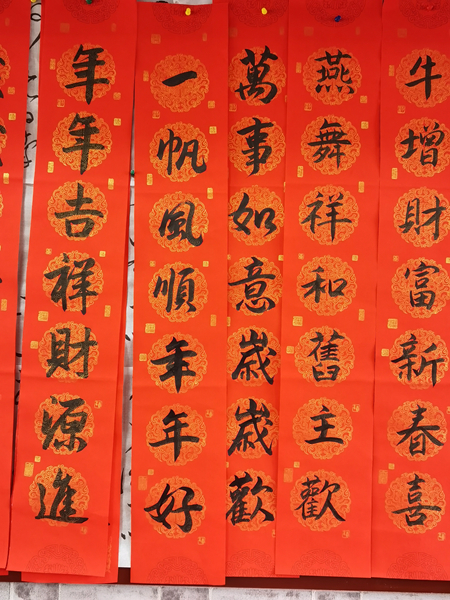 牛增財富新春喜
燕舞祥和舊主歡
萬事如意歲歲歡
一帆風順年年好
年年吉祥財源進